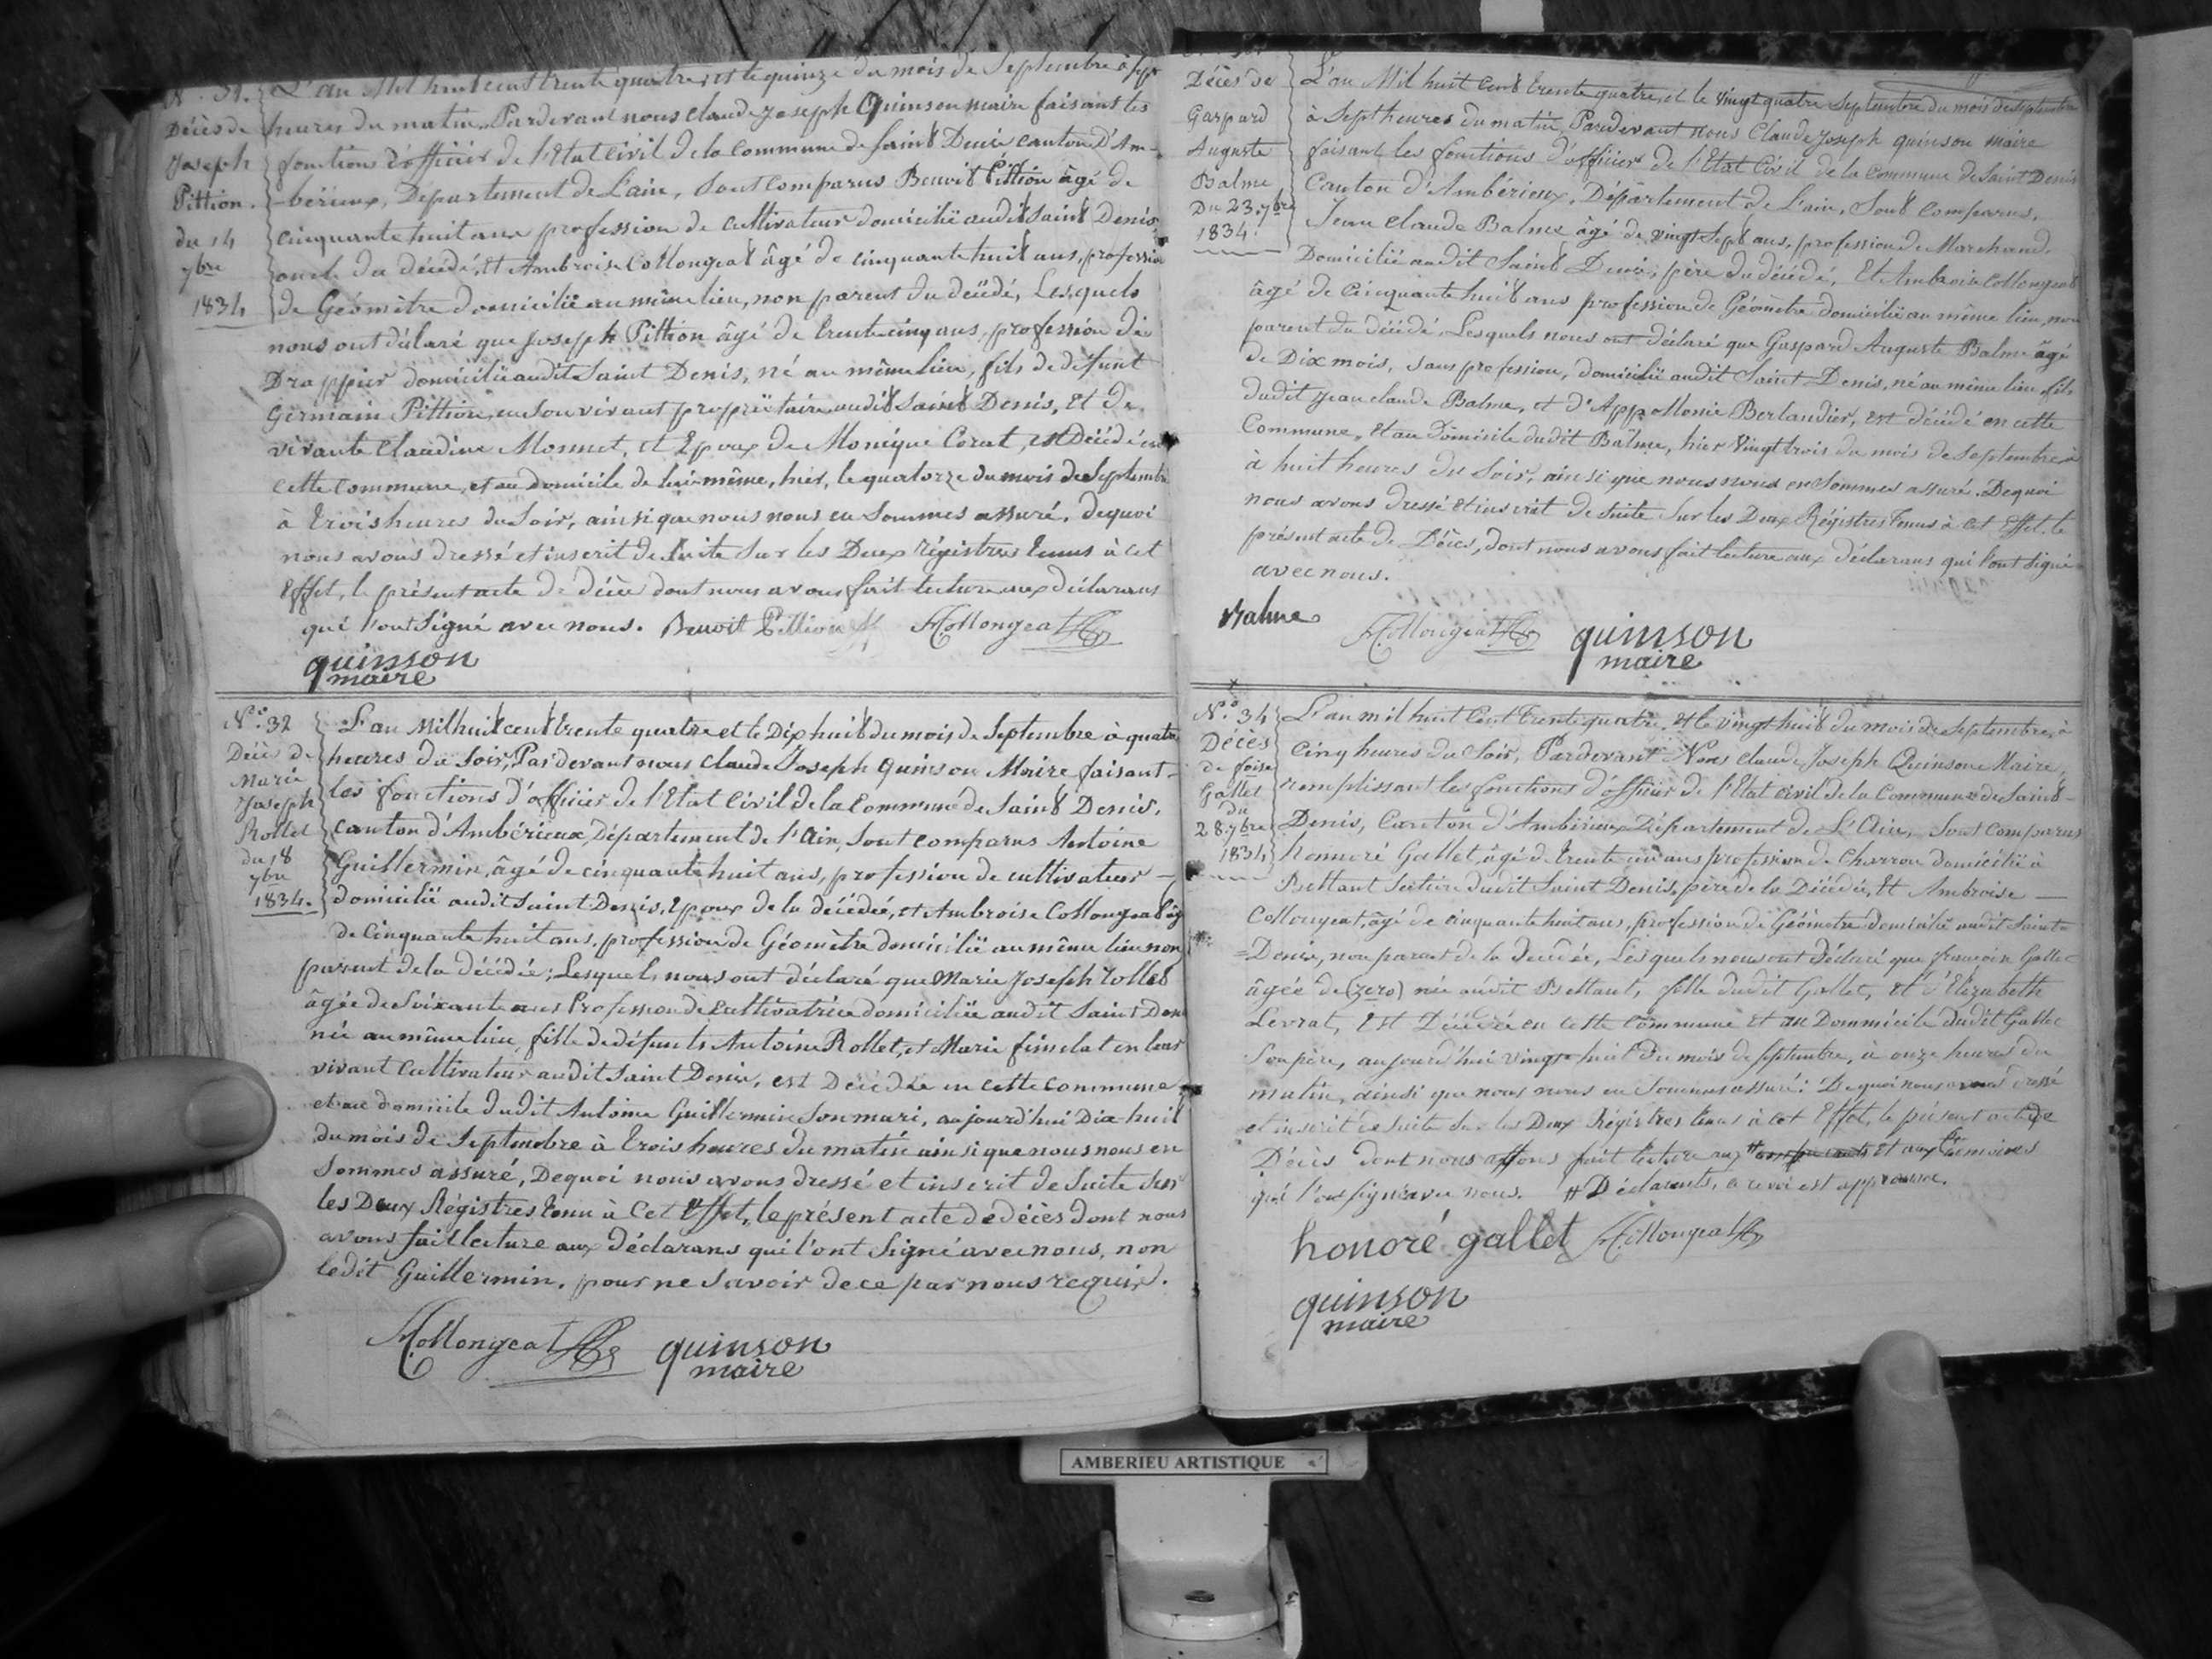 N°. 31.
Décès de
Joseph
Pittion.
du 14
7bre
1834
L'an Mil huit cent trente quatre, et le quinze du mois de Septembre à sept
heures du matin, Pardevant nous Claude Joseph Quinson maire faisant les
fonctions d'officier de l'Etat Civil de la Commune de Saint Denis canton D'Am-
-bérieux, Département de L'ain, Sont Comparus Benoit Pittion âgé de
cinquante huit ans profession de cultivateur domicilié audit Saint Denis,
oncle du décédé, et Ambroise Collongeat âgé de cinquante huit ans, profession
de Géomètre domicilié au même lieu, non parent du décédé, Lesquels
nous ont déclaré que Joseph Pittion âgé de trente cinq ans, profession de
Drappier domicilié audit Saint Denis, né au même lieu, fils de défunt
Germain Pittion, en son vivant propriétaire audit Saint Denis, et de
vivante Claudine Monnet, et Epoux de Monique Corat, est Décédé en
cette commune, et au domicile de lui-même, hier, le quatorze du mois de Septembre
à trois heures du Soir, ainsi que nous nous en Sommes assuré, dequoi
nous avons dressé et inscrit de Suite Sur les Deux régistres tenus à cet
Effet, le présent acte de décès dont nous avons fait lecture aux déclarans
qui l'ont Signé avec nous. Benoit Pittion ACollongeat
quinson
maire
N°. 32
Décès de
Marie
Joseph
Rollet
du 18
7bre
1834.
L'an Mil huit cent trente quatre et le Dix huit du mois de Septembre à quatre
heures du Soir, Pardevant nous Claude Joseph Quinson Maire faisant
les fonctions d'officier de l'Etat Civil de la Commune de Saint Denis,
canton d'Ambérieux, Département de l'Ain, Sont comparus Antoine
Guillermin, âgé de cinquante huit ans, profession de cultivateur
domicilié audit Saint Denis, Epoux de la décédée, et Ambroise Collongeat âgé
de cinquante huit ans, profession de Géomètre domicilié au même lieu non
parent de la décédée; Lesquels nous ont déclaré que Marie Joseph Rollet
âgée de Soixante ans Profession de Cultivatrice domiciliée audit Saint Denis
née au même lieu, fille de défunts Antoine Rollet, et Marie en leur
vivant Cultivateur audit Saint Denis, est Décédée en cette commune
et au domicile dudit Antoine Guillermin Son mari, aujourd'hui Dix huit
du mois de Septembre à trois heures du matin ainsi que nous nous en
Sommes assuré, Dequoi nous avons dressé et inscrit de Suite Sur
les Deux Régistres tenu à Cet Effet, le présent acte de décès dont nous
avons fait lecture aux déclarans qui l'ont Signé avec nous, non
ledit Guillermin, pour ne Savoir de ce par nous requis.
ACollongeat quinson
maire
Décès de
Gaspard
Auguste
Balme
Du 23. 7bre
1834.
L'an Mil huit cent trente quatre, et le vingt quatre Septembre du mois de Septembre
à Sept heures du matin, Pardevant nous Claude Joseph quinson maire
faisant les fonctions d'officier de l'Etat Civil de la Commune de Saint Denis
Canton d'Ambérieux, Département de L'ain, Sont Comparus,
Jean Claude Balme âgé de vingt Sept ans, profession de Marchand,
Domicilié audit Saint Denis, père du décédé, Et Ambroise Collongeat
âgé de Cinquante huit ans profession de Géomètre domicilié au même lieu, non
parent du décédé, Lesquels nous ont déclaré que Gaspard Auguste Balme âgé
de Dix mois, Sans profession, domicilié audit Saint Denis, né au même lieu fils
dudit Jean Claude Balme, et d'Appollonie Berlandier, est décédé en cette
Commune, Et au Domicile dudit Balme, hier Vingt trois du mois de Septembre à
à huit heures du Soir, ainsi que nous nous en Sommes assuré. Dequoi
nous avons dressé et inscrit de Suite Sur les Deux Régistres tenus à cet Effet. le
présent acte de Décès, dont nous avons fait lecture aux déclarans qui l'ont Signé
avec nous.
Balme ACollongeat quinson
maire
N°. 34
Décès
de foise
Gallet
du
28. 7bre
1834
L'an mil huit Cent trente quatre, et le vingt huit du mois de Septembre, à
Cinq heures du Soir, Pardevant Nous Claude Joseph Quinson Maire,
remplissant les fonctions d'officier de l'Etat civil de la Commune de Saint-
Denis, Canton d'Ambérieux Département de L'Ain, Sont Comparus
honnoré Gallet, âgé de trente un ans profession de Charron domicilié à
Bettant Section dudit Saint Denis, père de la Décédée, Et Ambroise
Collongeat, âgé de cinquante huit ans, profession de Géomètre domicilié audit Saint
=Denis, non parent de la décédée, Lesquels nous ont déclaré que françoise Gallet
âgée de (zero) née audit Bettant, fille dudit Gallet, et d'Elizabeth
Levrat, Est Décédée en cette Commune et au Dommicile dudit Gallet
Son père, aujourd'hui vingt huit du mois de septembre, à onze heures du
matin, ainsi que nous nous en Sommes assuré: De quoi nous avons dressé
et inscrit de Suite sur les Deux Régistres tenus à cet Effet, le présent acte de
Décès dont nous avons fait lecture aux # comparants et aux témoins
qui l'ont signé avec nous. # Déclarants, a renvoi est approuvé.
honoré gallet ACollongeat
quinson
maire
AMBERIEU ARTISTIQUE